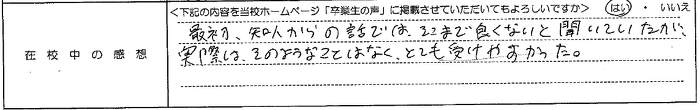 <下記の内容を当校ホームページ「卒業生の声」に掲載させていただいてもよろしいですか> はい ・ いいえ
在校中の感想
最初、知人からの話では、そこまで良くないと聞いていたが、
実際は、そのようなことはなく、とても受けやすかった。